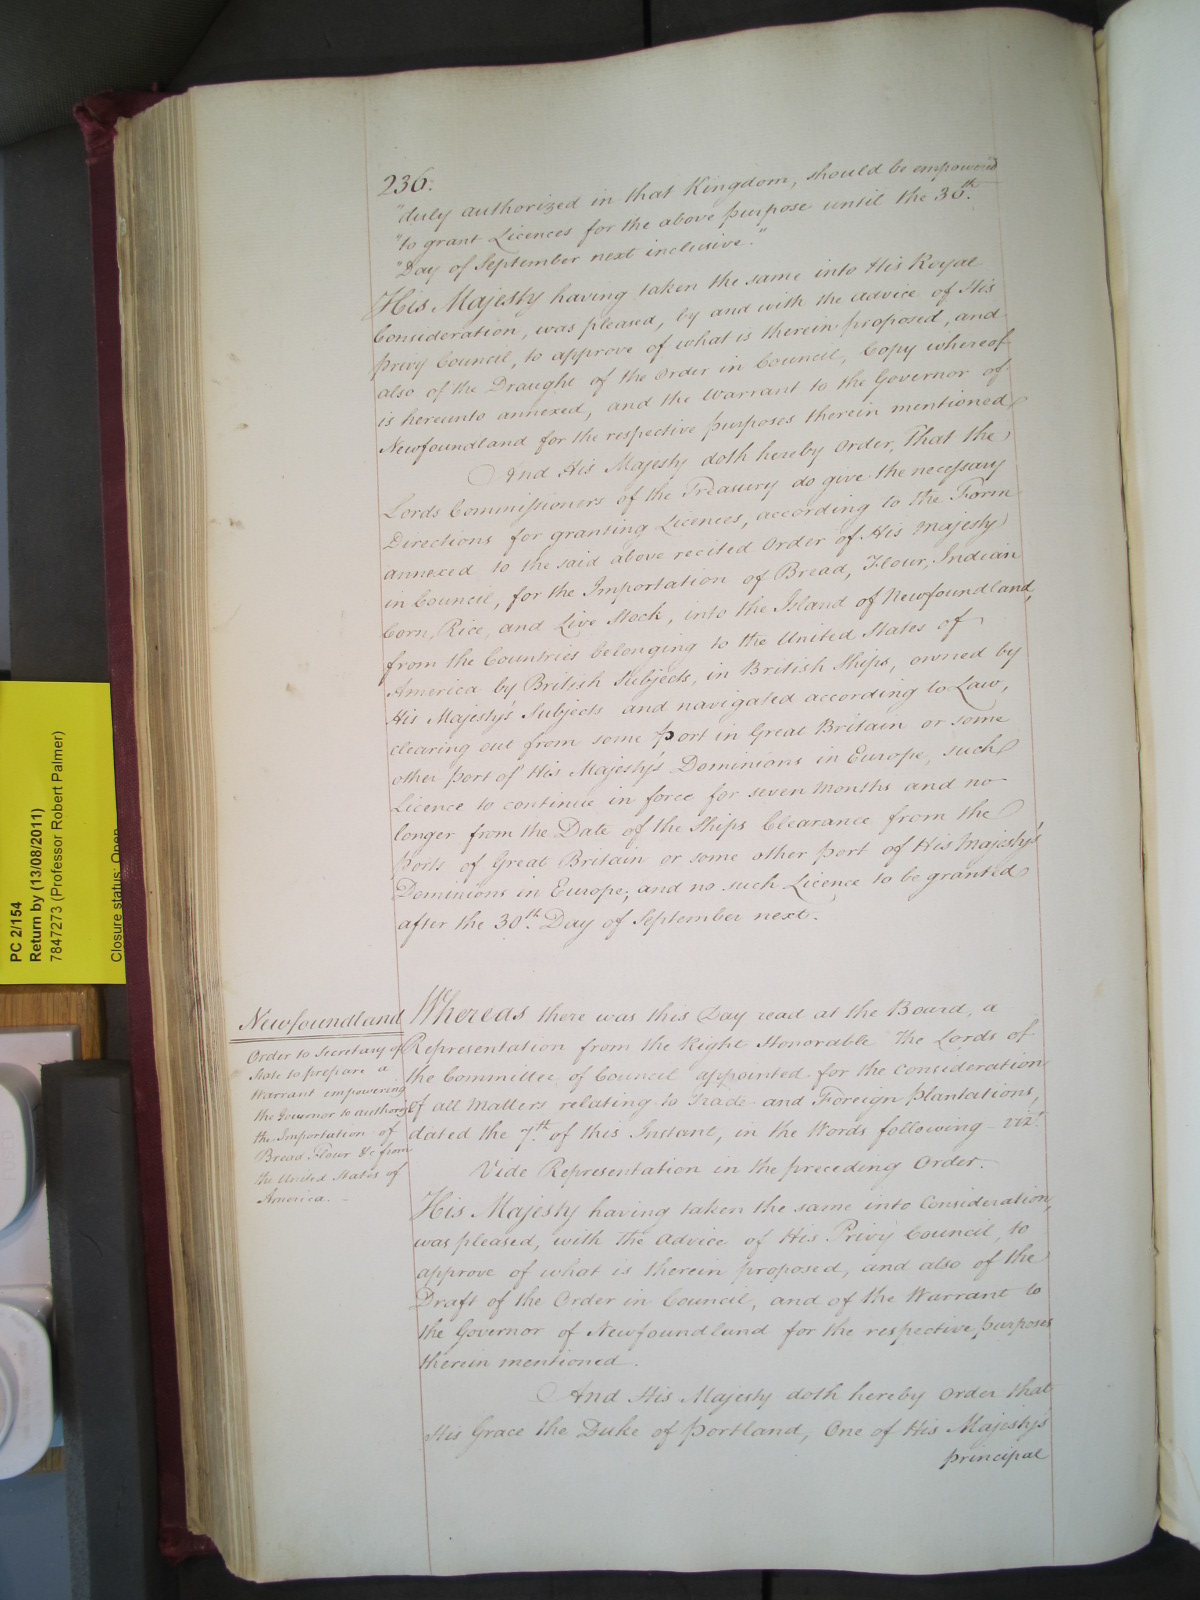 236.
"duly authorized in that Kingdom, should be empowered
"to grant Licences for the above purpose until the 30th.
"Day of September next inclusive."
His Majesty having taken the same into His Royal
Consideration, was pleased, by and with the advice of His
Privy Council, to approve of what is therein proposed, and
also of the Draught of the Order in Council, Copy whereof
is hereunto annexed, and the Warrant to the Governor of
Newfoundland for the respective purposes therein mentioned
And His Majesty doth hereby Order, That the
Lords Commissioners of the Treasury do give the necessary
Directions for granting Licences, according to the Form
annexed to the said above recited Order of His Majesty
in Council, for the Importation of Bread, Flour, Indian
Corn, Rice, and Live Stock, into the Island of Newfoundland,
from the Countries belonging to the United States of
America by British Subjects, in British Ships, owned by
His Majesty's Subjects and navigated according to Law,
clearing out from some Port in Great Britain or some
other Port of His Majesty's Dominions in Europe, such
Licence to continue in force for seven Months and no
longer from the Date of the Ships Clearance from the
Ports of Great Britain or some other Port of His Majesty's
Dominions in Europe; and no such Licence to be granted
after the 30th. Day of September next.
Newfoundland
Order to Secretary of
State to prepare a
Warrant empowering
the Governor to authorize
the Importation of
Bread Flour &c from
the United States of
America.
Whereas there was this Day read at the Board, a
Representation from the Right Honorable the Lords of
the Committee of Council appointed for the Consideration
of all Matters relating to Trade and Foreign Plantations,
dated the 7th. of this Instant, in the Words following - vizt.
Vide Representation in the preceding Order.
His Majesty having taken the same into Consideration,
was pleased, with the advice of His Privy Council, to
approve of what is therein proposed, and also of the
Draft of the Order in Council, and of the Warrant to
the Governor of Newfoundland for the respective purposes
therein mentioned.
And His Majesty doth hereby Order that
His Grace the Duke of Portland, One of His Majesty's
principal
PC 2/154
Return by (13/08/2011)
7847273 (Professor Robert Palmer)
Closure status: Open